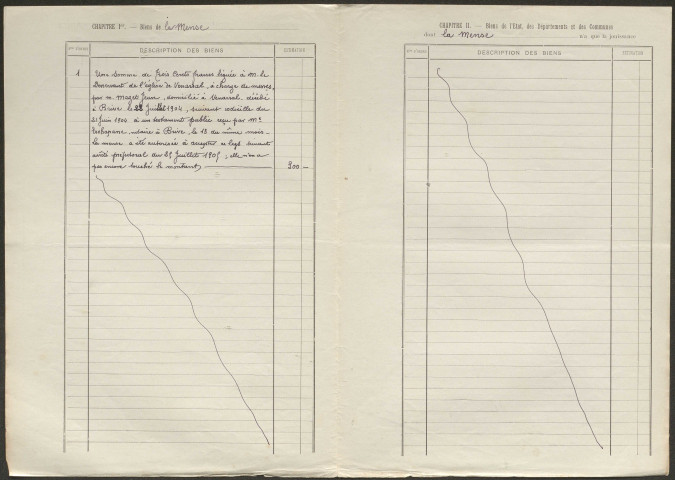 CHAPITRE Ier. — Biens de la Mense
Nos d'ordre DESCRIPTION DES BIENS ESTIMATION
1 Une somme de trois cents francs léguée à M. le
Desservant de l'église de Venarsal, à charge de messes,
par M. Maget Jean, domicilié à Venarsal, décédé
à Brive le 28 Juillet 1904, suivant codicille du
Juin 1904 à un testament public reçu par Me
notaire à Brive, le 13 du même mois.
la mense a été autorisée à accepter ce legs suivant
arrêté préfectoral du 25 Juillet 1905 ; elle n'en a
pas encore touché le montant 300 —
CHAPITRE II. — Biens de l'Etat, des Départements et des Communes
dont la Mense n'a que la jouissance
Nos d'ordre DESCRIPTION DES BIENS ESTIMATION